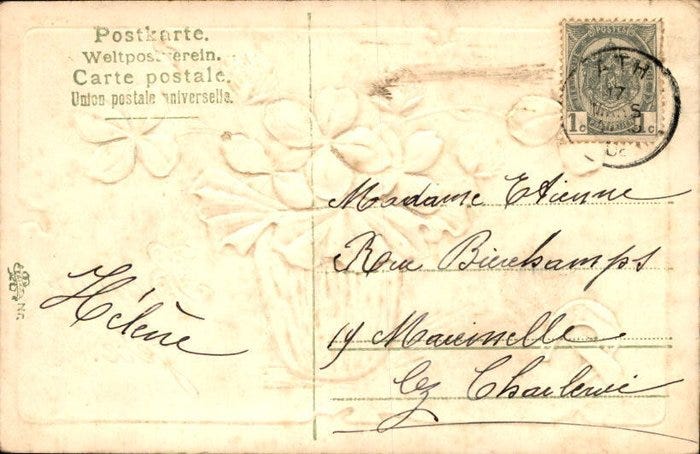 Postkarte.
Weltpostverein.
Carte postale.
Union postale universelle.
POSTES
1c 1c
ATH
17
S
Madame Etienne
Rue Bierchamps
19 Marcinelle
lez Charleroi
Hélène